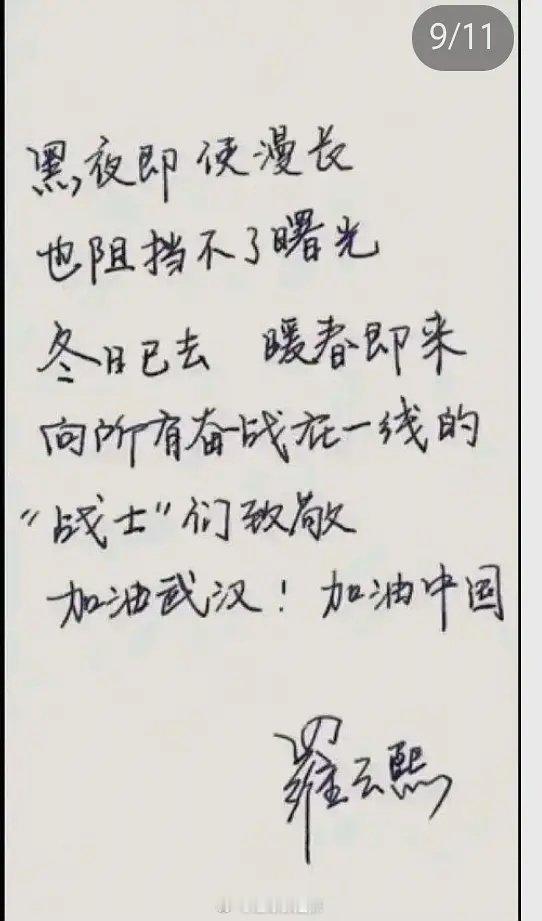 9/11
黑夜即使漫长
也阻挡不了曙光
冬日已去 暖春即来
向所有奋战在一线的
“战士”们致敬
加油武汉！加油中国
罗云熙